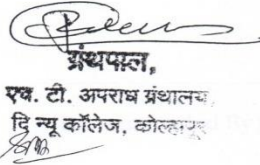 ग्रंथपाल,
एच. टी. अपराध ग्रंथालय,
दि न्यू कॉलेज, कोल्हापूर